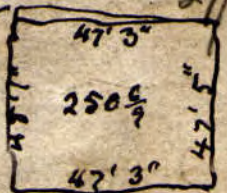 47' 3"
48' 1"
250 6/9
47' 5"
47' 3"